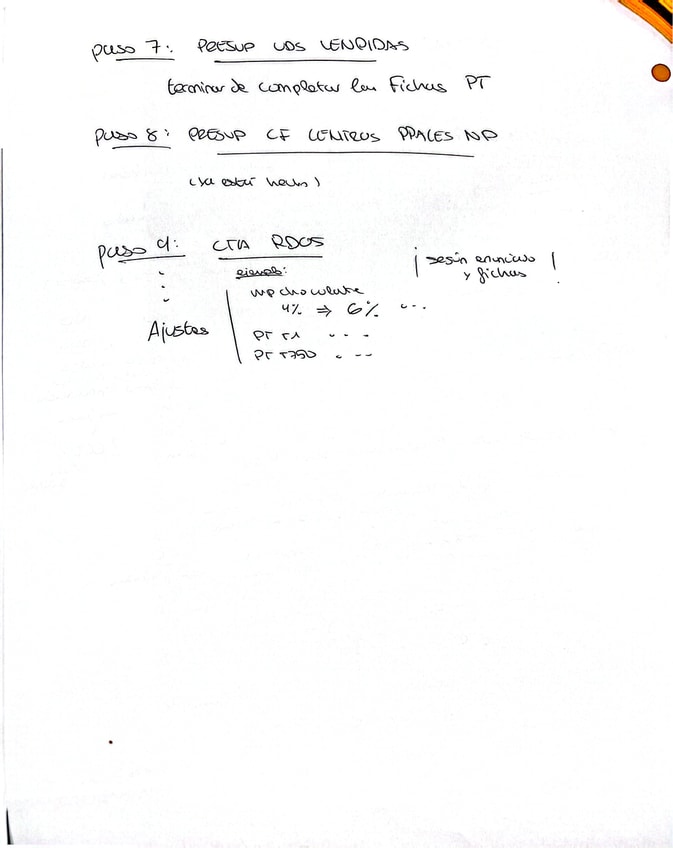 paso 7: PRESUP UDS VENDIDAS
terminar de completar las Fichas PT
paso 8: PRESUP CF CENTROS PPALES NP
(ya está hecho)
paso 9: CTA RDOS
ejemplo:
¡ según enunciado
y fichas !
MP chocolate
4% ⇒ 6% ...
Ajustes
PT T1 ...
PT T250 ...